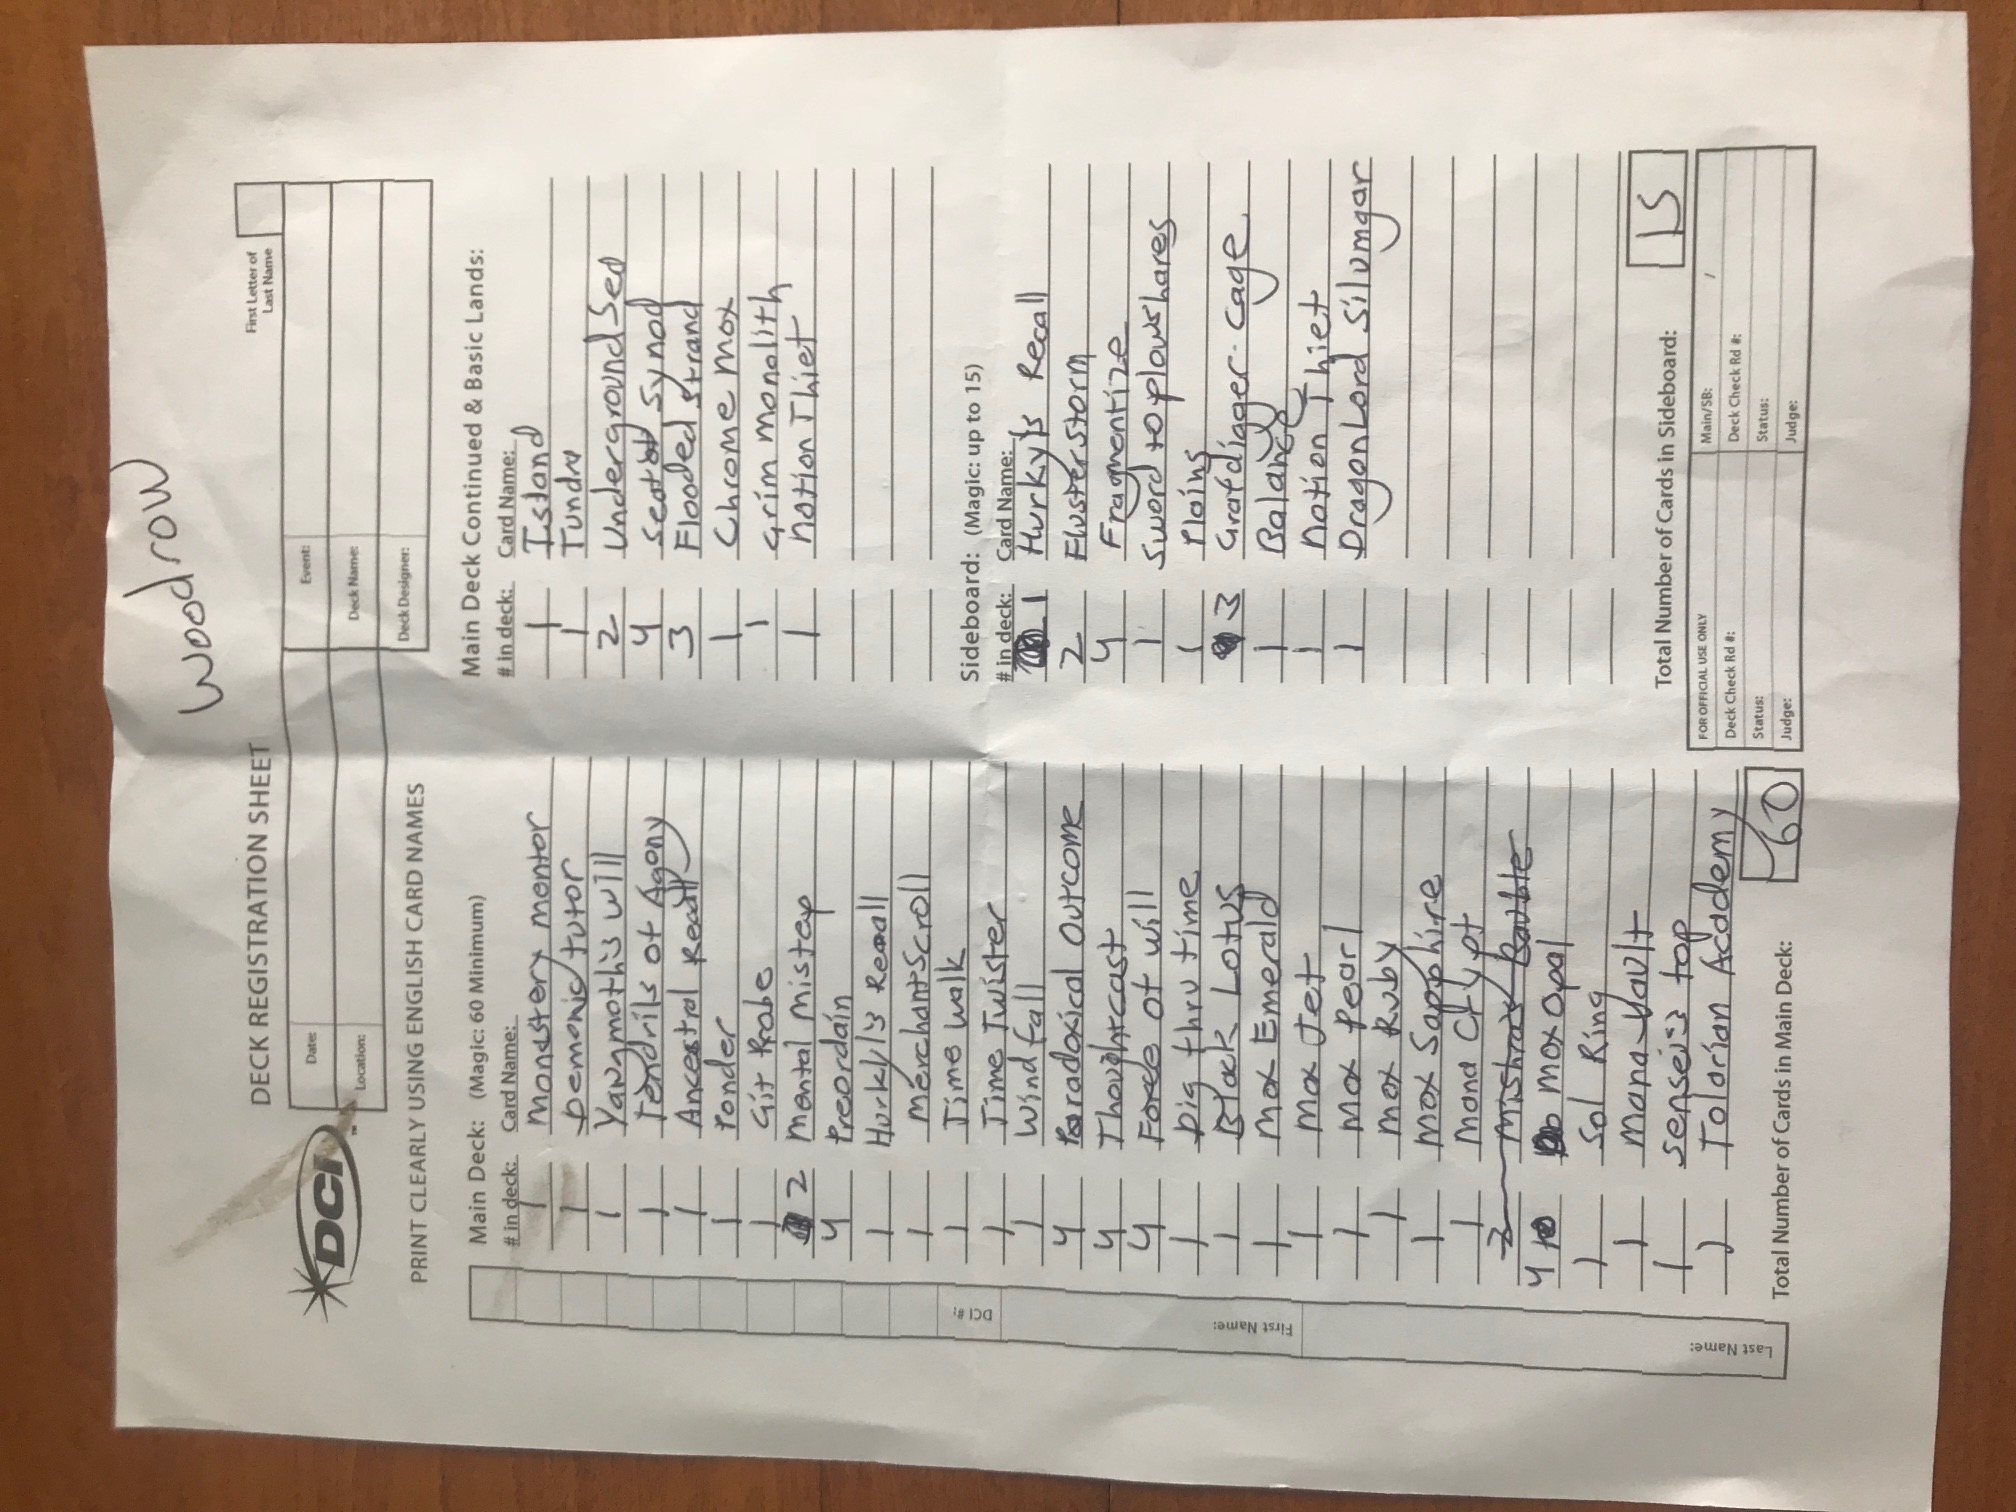 Woodrow
DECK REGISTRATION SHEET
First Letter of
Last Name
DCI
™
Date:
Event:
Location:
Deck Name:
Deck Designer:
PRINT CLEARLY USING ENGLISH CARD NAMES
Main Deck: (Magic: 60 Minimum)
# in deck: Card Name:
1 Monastery mentor
1 Demonic tutor
1 Yawgmoth's will
1 Tendrils of Agony
1 Ancestral Recall
1 Ponder
1 Git Probe
2 Mental Mistep
4 Preordain
1 Hurkyl's Recall
1 MerchantScroll
1 Time Walk
1 Time Twister
1 Windfall
4 Paradoxical Outcome
4 Thoughtcast
4 Force of will
1 Dig thru time
1 Black Lotus
1 Mox Emerald
1 Mox Jet
1 Mox Pearl
1 Mox Ruby
1 Mox Sapphire
1 Mana Crypt
2 Mishra's Bauble
4 Mox Opal
1 Sol Ring
1 Mana Vault
1 Sensei's top
1 Tolarian Academy
Total Number of Cards in Main Deck: 60
DCI #:
First Name:
Last Name:
Main Deck Continued & Basic Lands:
# in deck: Card Name:
1 Island
1 Tundra
2 Underground Sea
4 Seat of Synod
3 Flooded Strand
1 Chrome Mox
1 Grim monolith
1 Notion Thief
Sideboard: (Magic: up to 15)
# in deck: Card Name:
1 Hurky's Recall
2 Flusterstorm
4 Fragmentize
1 Sword to plowshares
1 Plains
3 Grafdigger cage
1 Balance
1 Notion Thief
1 DragonLord Silumgar
Total Number of Cards in Sideboard: 15
FOR OFFICIAL USE ONLY
Main/SB: /
Deck Check Rd #:
Deck Check Rd #:
Status:
Status:
Judge:
Judge: